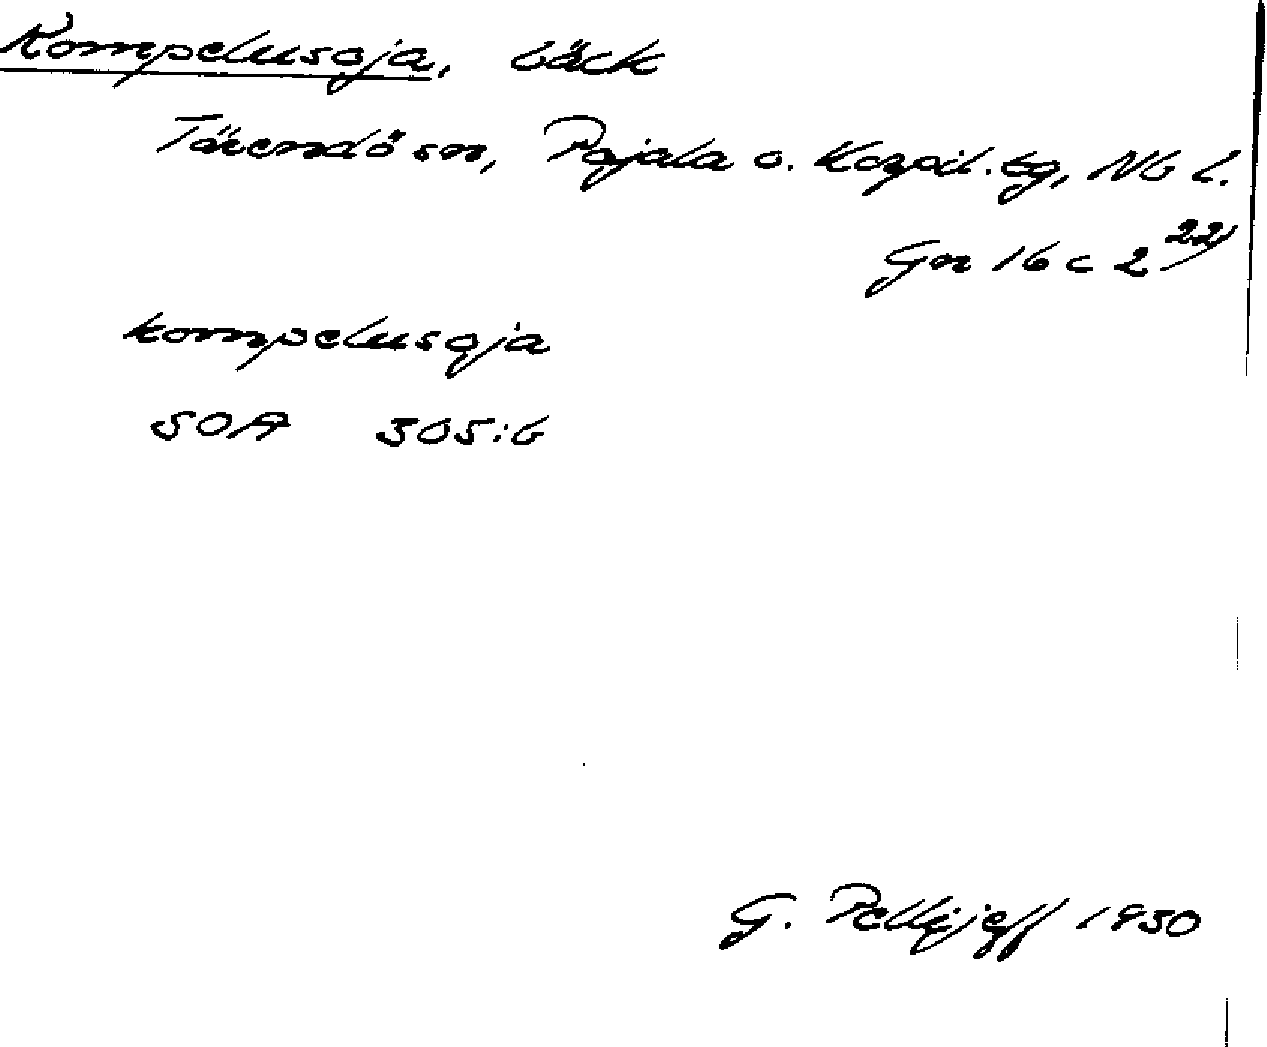 Kompelusoja, bäck
Tärendö sn, Pajala o. Korpil. tg, Nb l.
Gn 16 c 2 22/
kompelusoja
SOA 305:6
G. Pellijeff 1950